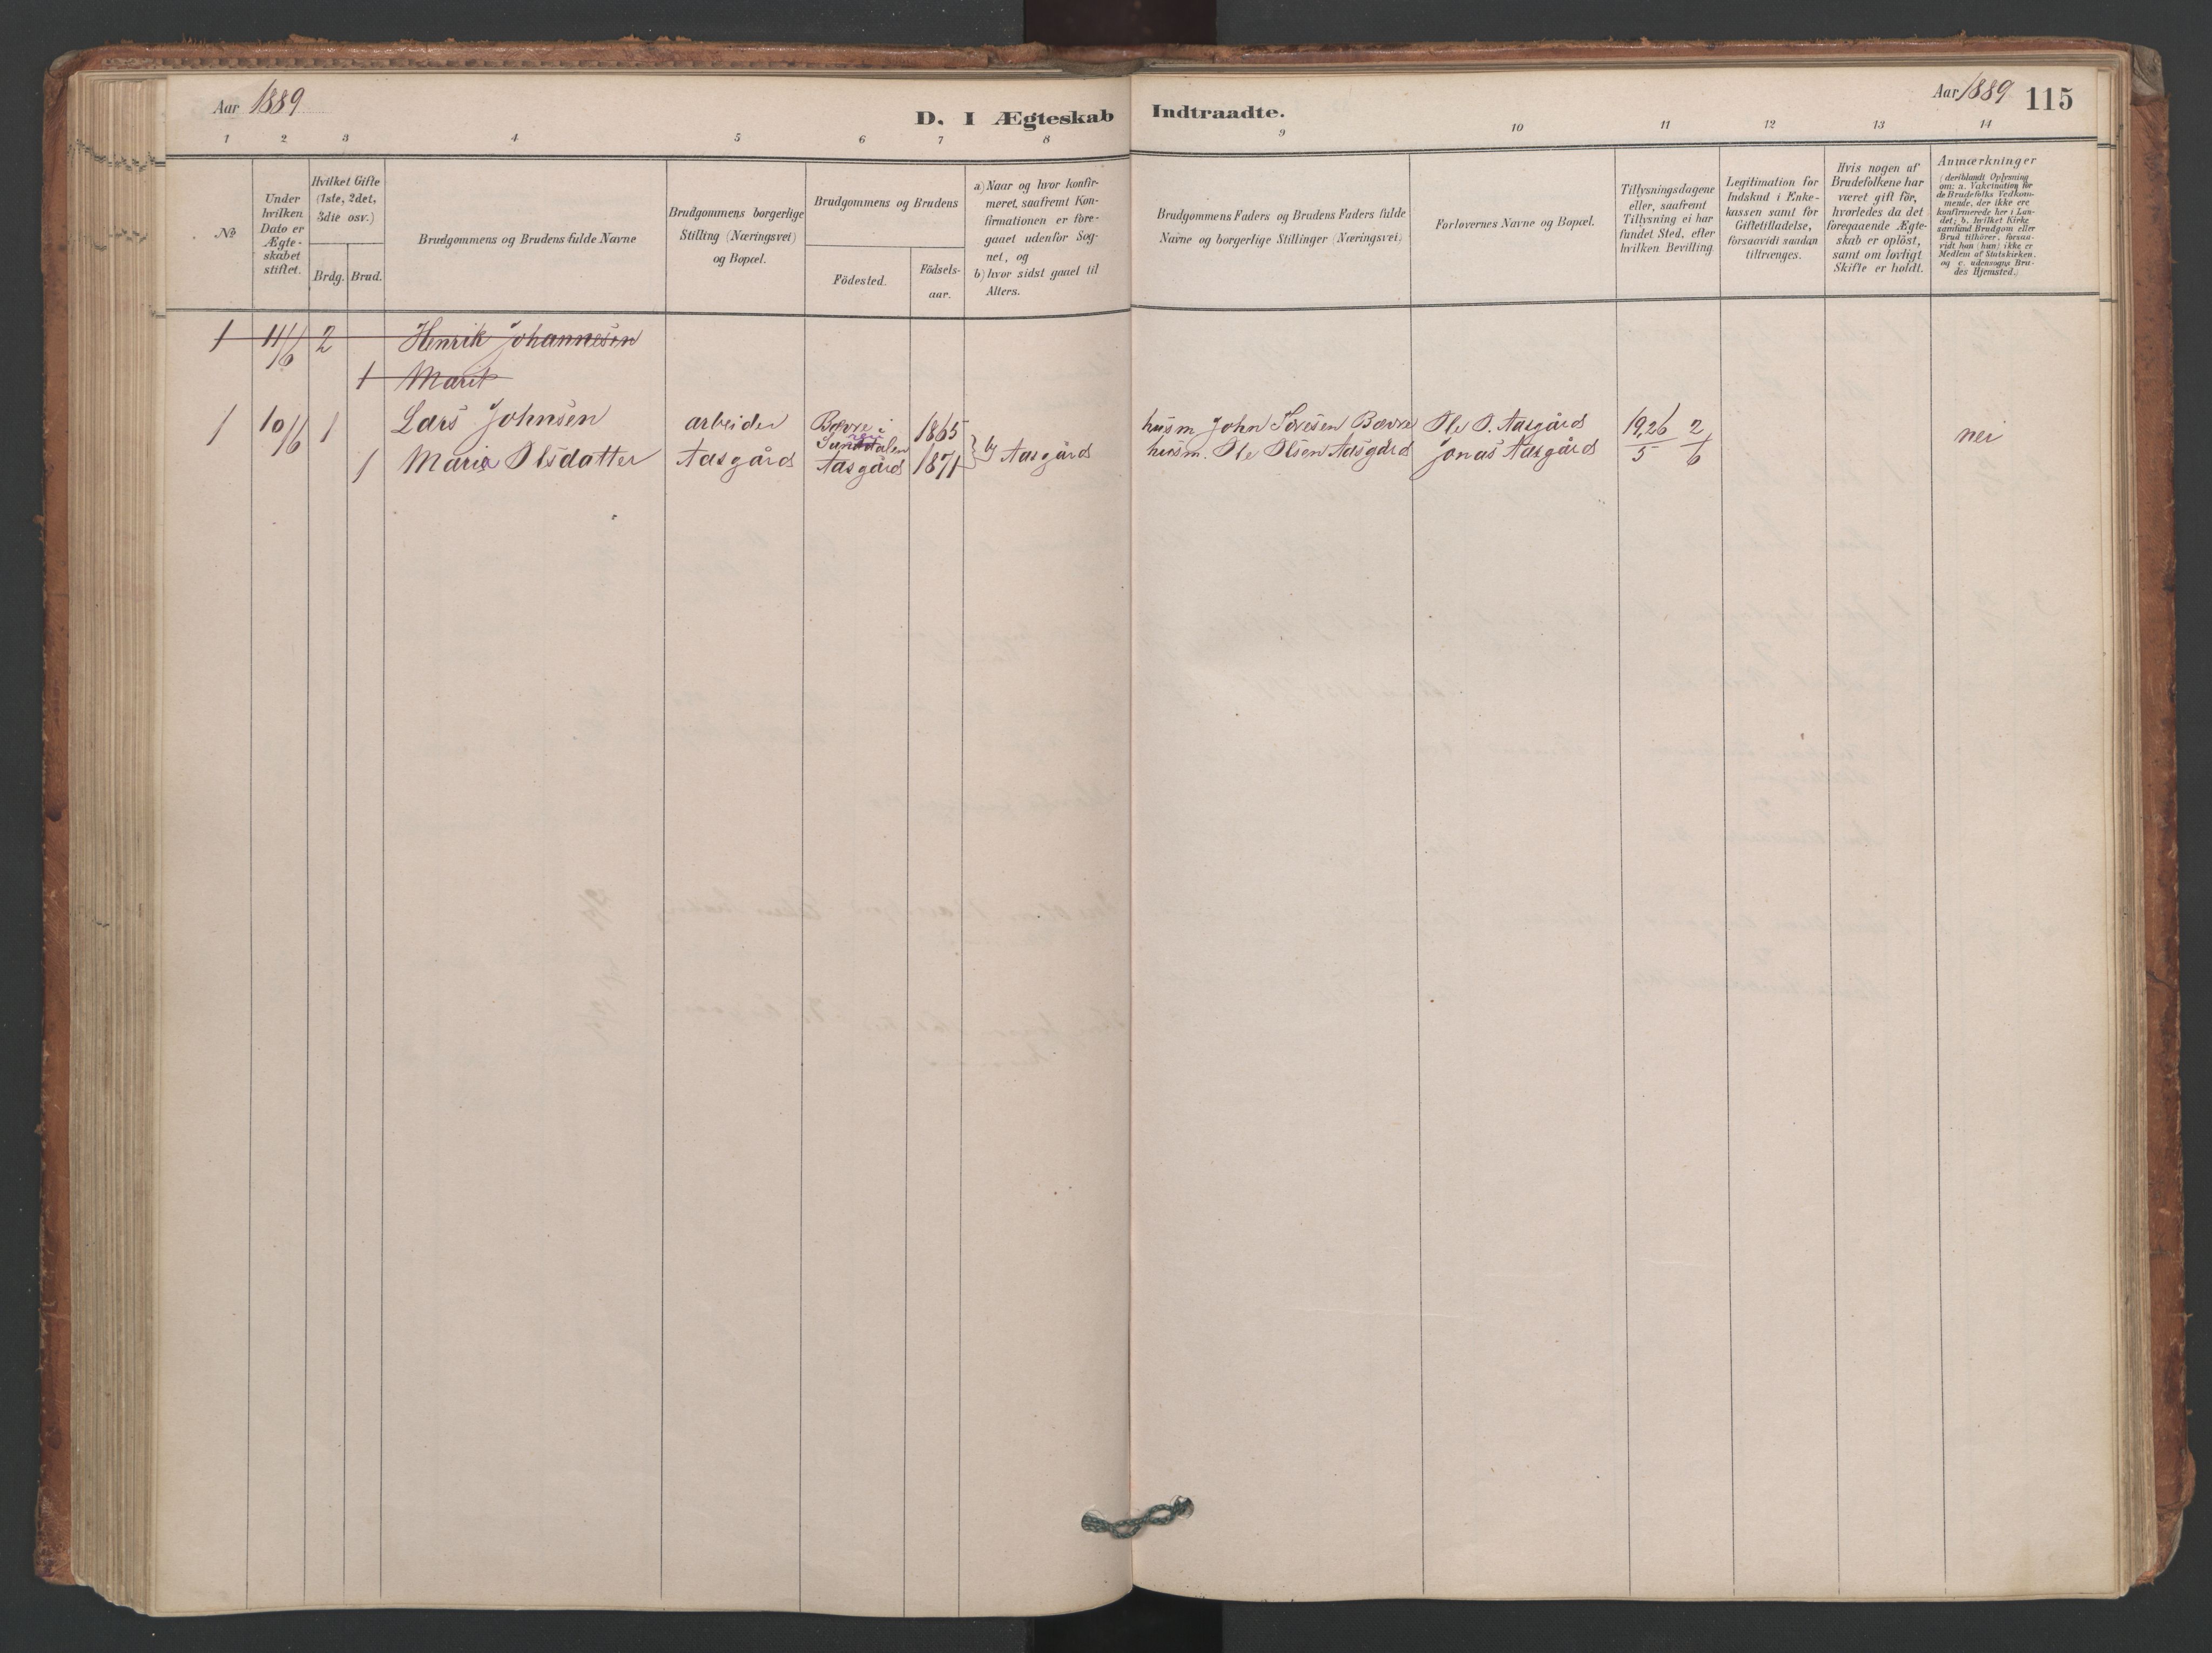 Aar 1889
D. I Ægteskab Indtraadte.
Aar 1889 115
1 2 3 4 5 6 7 8 9 10 11 12 13 14
No
Under
hvilken
Dato er
Ægte-
skabet
stiftet.
Hvilket Gifte
(1ste, 2det,
3die osv.)
Brdg. Brud.
Brudgommens og Brudens fulde Navne
Brudgommens borgerlige
Stilling (Næringsvei)
og Bopæl.
Brudgommens og Brudens
Födested.
Födsels-
aar.
a) Naar og hvor konfir-
meret, saafremt Kon-
firmationen er fore-
gaaet udenfor Sog-
net, og
b) hvor sidst gaaet til
Alters.
Brudgommens Faders og Brudens Faders fulde
Navne og borgerlige Stillinger (Næringsvei)
Forlovernes Navne og Bopæl.
Tillysningsdagene
eller, saafremt
Tillysning ei har
fundet Sted, efter
hvilken Bevilling.
Legitimation for
Indskud i Enke-
kassen samt for
Giftetilladelse,
forsaavidt saadan
tiltrænges.
Hvis nogen af
Brudefolkene har
været gift för,
hvorledes da det
foregaaende Ægte-
skab er oplöst,
samt om lovligt
Skifte er holdt.
Anmærkninger
(deriblandt Oplysning
om: a. Vakcination for
de Brudefolks Vedkom-
mende, der ikke ere
konfirmerede her i Lan-
det; b. hvilket Kirke
samfund Brudgom eller
Brud tilhörer, forsaa-
vidt han (hun) ikke er
Medlem af Statskirken.
og c. udensogns Bru-
des Hjemsted.)
1 11/6 2 Henrik Johannesen
1 Marit
1 10/6 1 Lars Johnsen arbeider Bævre i 1865 husm John Sivesen Bævre Ole O. Aasgård 19,26/5 2/6 nei
1 Maria Olsdatter Aasgård Aasgård 1871 b) Aasgård husm. Ole Olsen Aasgård Jonas Aasgård